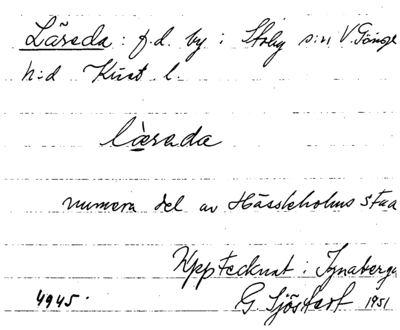 Läreda: f.d. by i Stoby s:n V. Göinge
h:d Krist l.
làreda
numera del av Hässleholms sta
Upptecknat i Ignaberga
4945. G Sjöstedt 1951